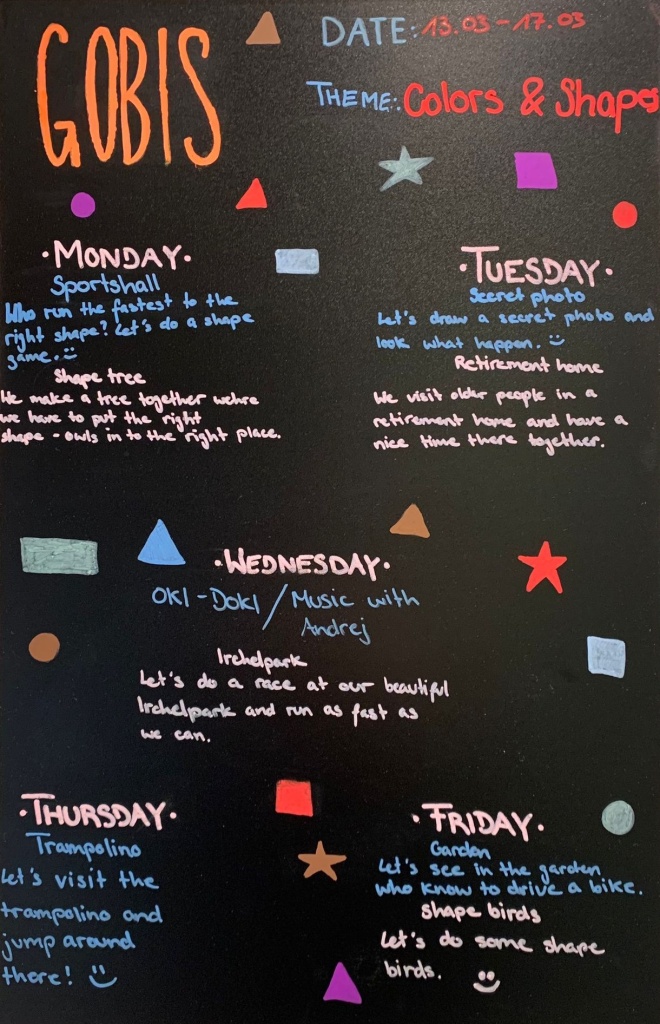 GOBIS
DATE: 13.03 - 17.03
THEME: Colors & Shapes
·MONDAY·
Sportshall
Who run the fastest to the
right shape? Let's do a shape
game.
Shape tree
We make a tree together wehre
we have to put the right
shape - owls in to the right place.
·TUESDAY·
Secret photo
Let's draw a secret photo and
look what happen.
Retirement home
We visit older people in a
retirement home and have a
nice time there together.
·WEDNESDAY·
OKI-DOKI / Music with
Andrej
Irchelpark
Let's do a race at our beautiful
Irchelpark and run as fast as
we can.
·THURSDAY·
Trampolino
Let's visit the
trampolino and
jump around
there!
·FRIDAY·
Garden
Let's see in the garden
who know to drive a bike.
shape birds
Let's do some shape
birds.